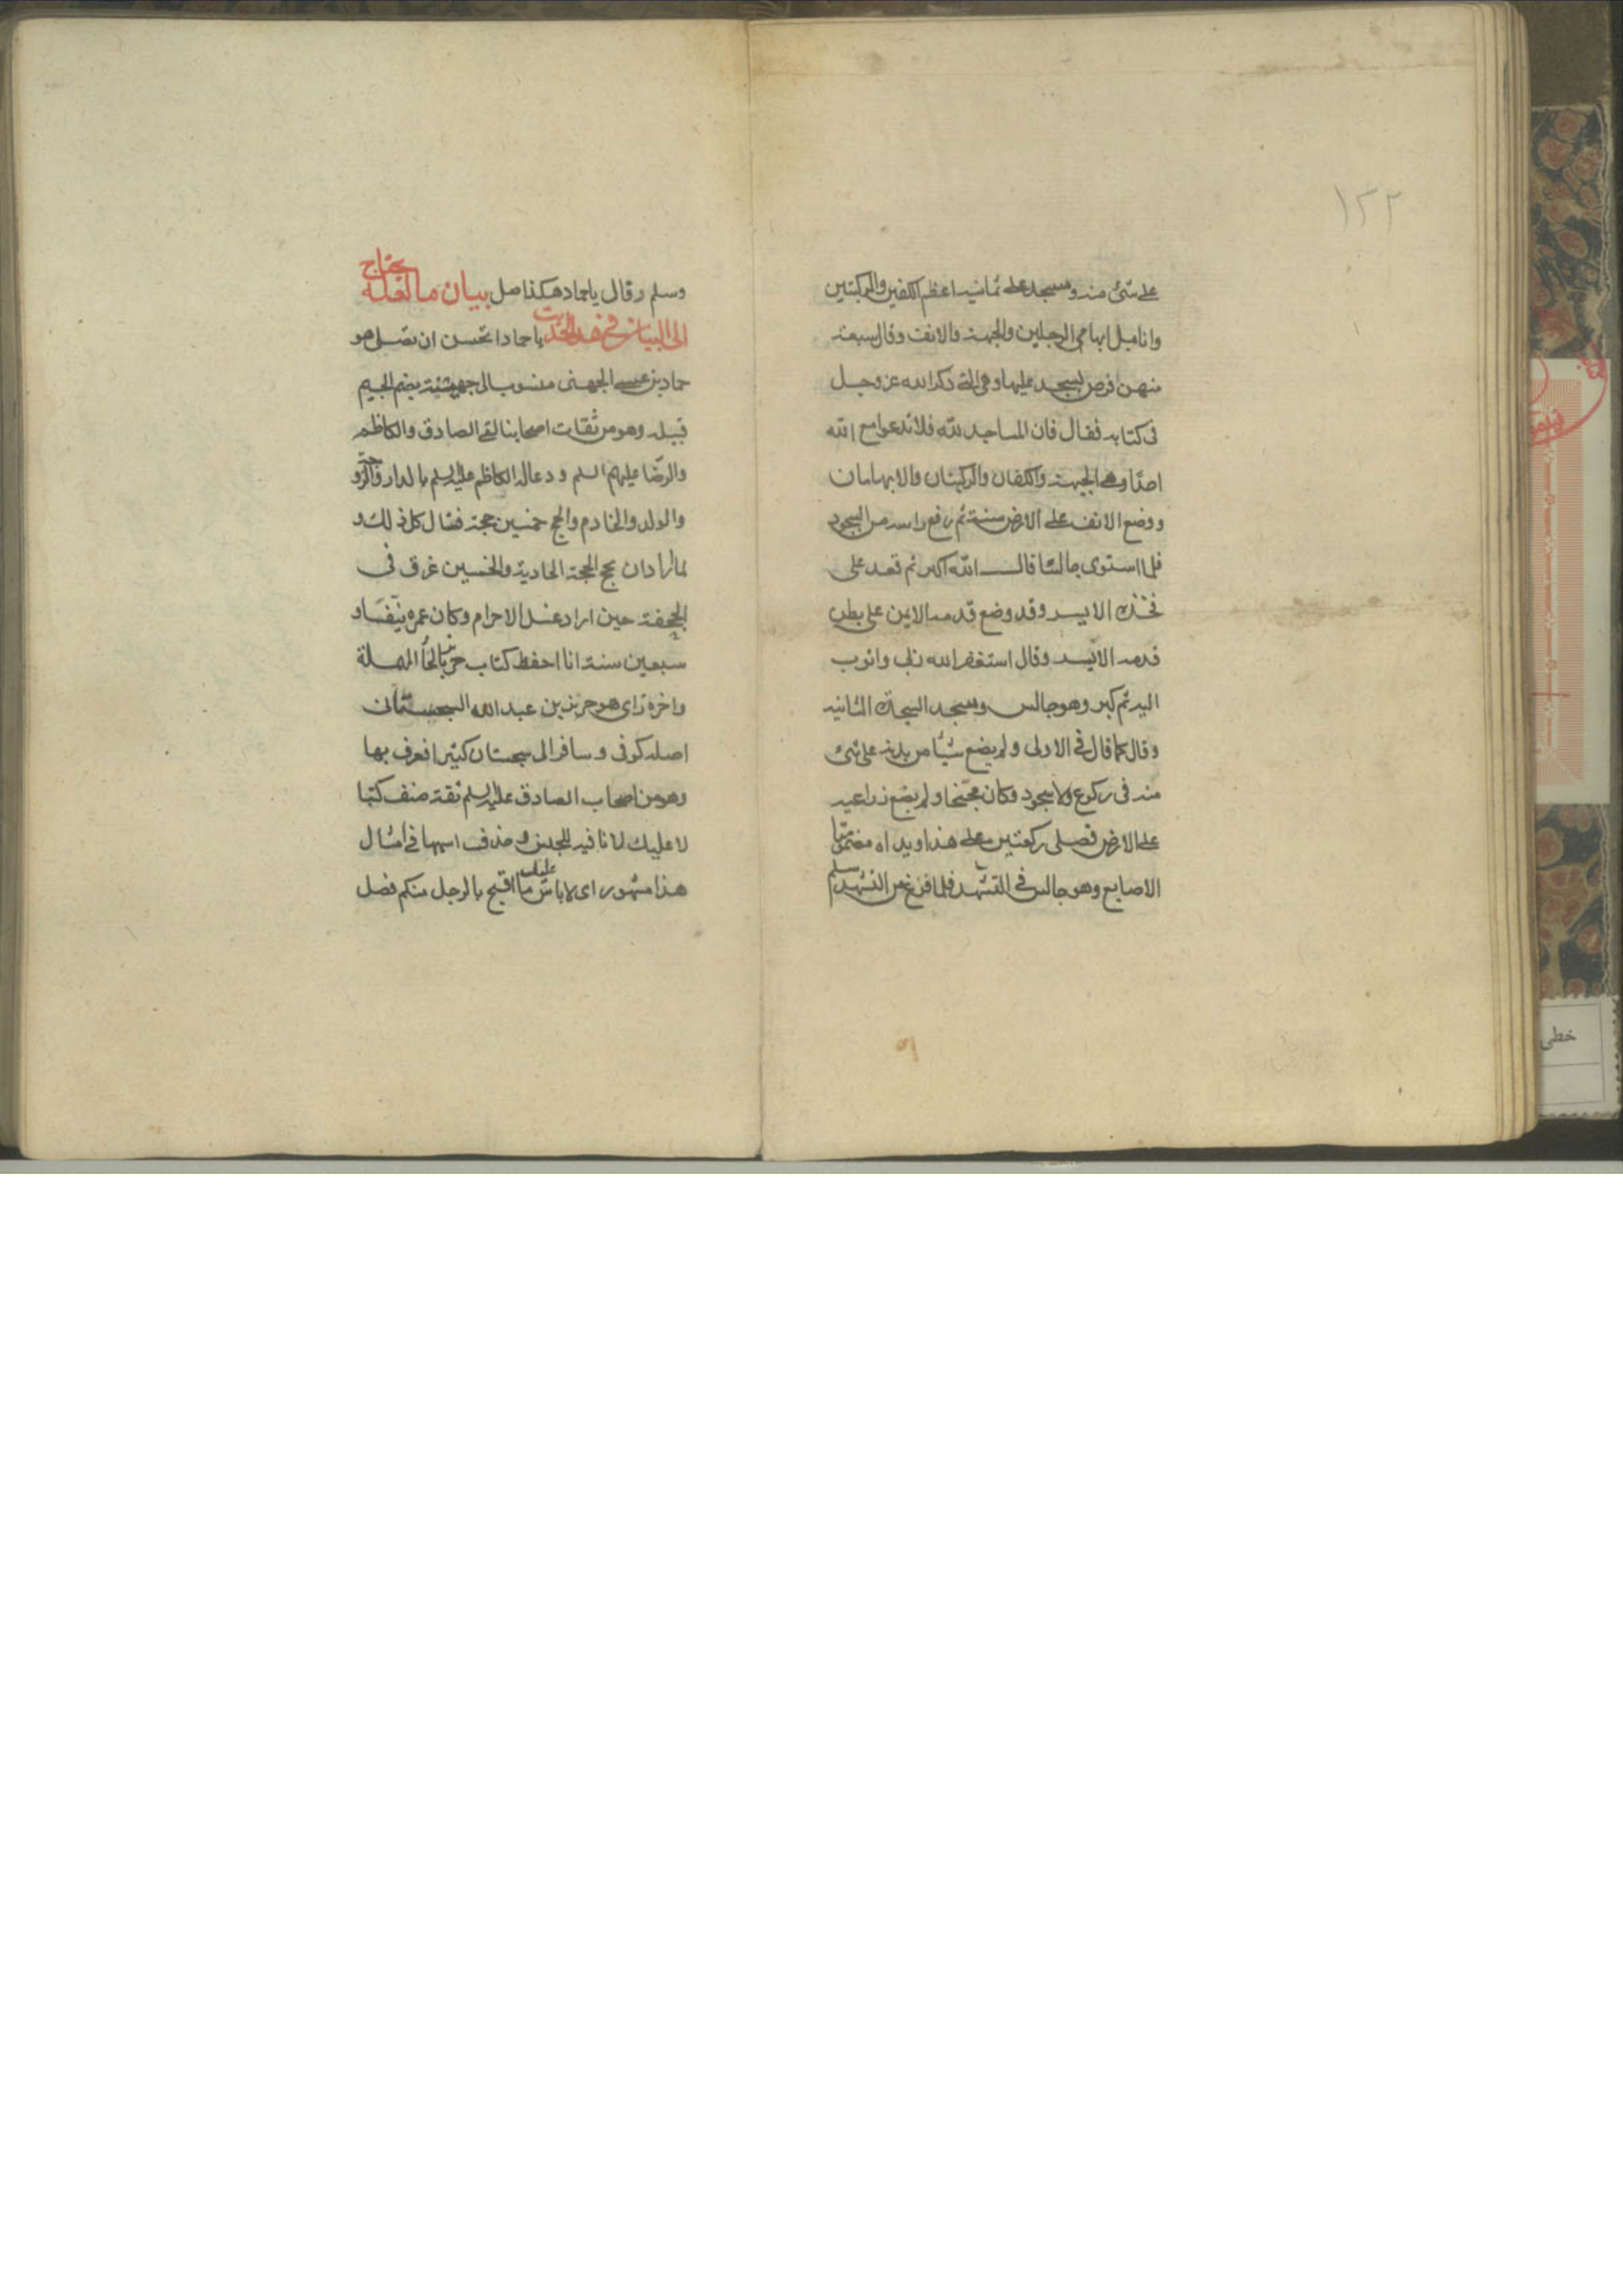 ۱۲۲
على شئ منه وسجد على ثمانية اعظم الكفين والركبتين
وانامل ابهامى الرجلين والجبهة والانف وقال سبعة
منهن فرض يسجد عليها وهى التى ذكر الله عز وجل
فى كتابه فقال فان المساجد لله فلا تدعوا مع الله
احدا وهى الجبهة والكفان والركبتان والابهامان
ووضع الانف على الارض سنة ثم رفع راسه من السجود
فلما استوى جالسا قال الله اكبر ثم قعد على
فخذه الايسر وقد وضع قدمه الايمن على بطن
قدمه الايسر وقال استغفر الله ربى واتوب
اليه ثم كبر وهو جالس وسجد السجدة الثانية
وقال كما قال فى الاولى ولم يضع شيئا من بدنه على شئ
منه فى ركوع ولا سجود وكان مجنحا ولم يضع ذراعيه
على الارض فصلى ركعتين على هذا ويداه مضمومتا
الاصابع وهو جالس فى التشهد فلما فرغ من التشهد سلم
وسلم وقال يا حماد هكذا صل بيان ما لعله يحتاج
الى البيان فى هذا الحديث يا حماد اتحسن ان تصلى هو
حماد بن عيسى الجهنى منسوب الى جهينة بضم الجيم
قبيلة وهو من ثقات اصحابنا لقى الصادق والكاظم
والرضا عليهم السلم ودعا له الكاظم عليه السلم بالدار والزوجة
والولد والخادم والحج خمسين حجة فقال كل ذلك و
لما اراد ان يحج الحجة الحادية والخمسين غرق فى
الجحفة حين اراد غسل الاحرام وكان عمره نيفا و
سبعين سنة انا احفظ كتاب حريز بالحاء المهملة
واخره زاى هو حريز بن عبد الله السجستانى
اصله كوفى وسافر الى سجستان كثيرا فعرف بها
وهو من اصحاب الصادق عليه السلم ثقة صنف كتبا
لا عليك لا نافية للجنس وحذف اسمها فى امثال
هذا مشهور اى لا باس عليك ما اقبح بالرجل منكم فصل
خطى